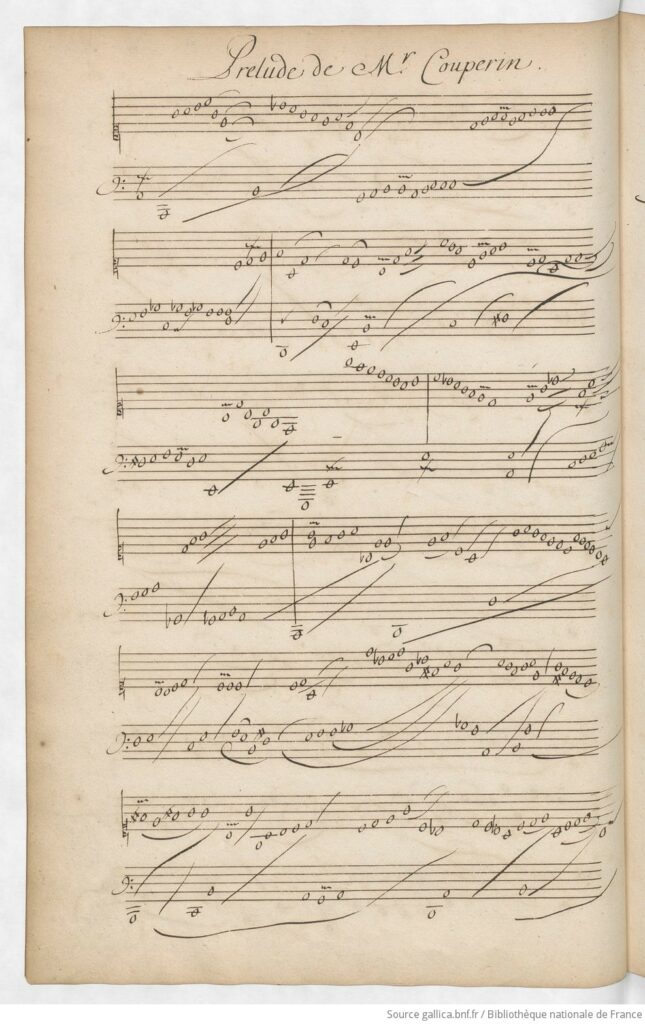 Prelude de Mr Couperin.
Source gallica.bnf.fr / Bibliothèque nationale de France